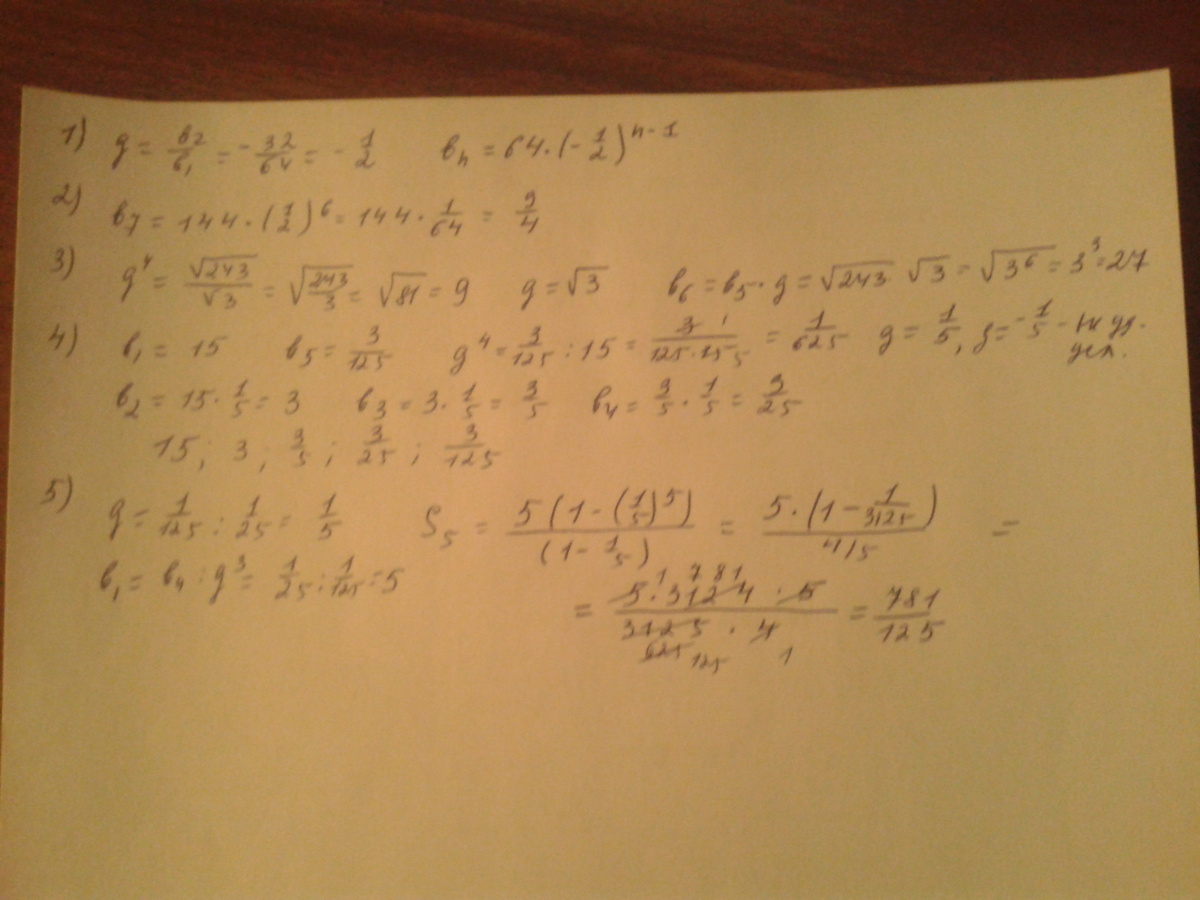 1) g = b₂/b₁ = -32/64 = -1/2 bₙ = 64·(-1/2)ⁿ⁻¹
2) b₇ = 144·(1/2)⁶ = 144·1/64 = 9/4
3) g⁴ = √243/√3 = √(243/3) = √81 = 9 g = √3 b₆ = b₅·g = √243·√3 = √3⁶ = 3³ = 27
4) b₁ = 15 b₅ = 3/125 g⁴ = 3/125 : 15 = 3 1/125·15 5 = 1/625 g = 1/5, g = -1/5 - не уд.
усл.
b₂ = 15·1/5 = 3 b₃ = 3·1/5 = 3/5 b₄ = 3/5·1/5 = 3/25
15; 3; 3/5; 3/25; 3/125
5) g = 1/125 : 1/25 = 1/5 S₅ = 5(1-(1/5)⁵)/(1-1/5) = 5·(1-1/3125)/4/5 =
b₁ = b₄ : g³ = 1/25 : 1/125 = 5
= 5·3124·5/3125·4 = 781/125
1 781
625 125 1